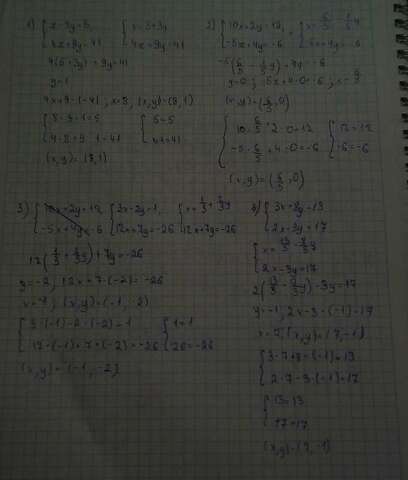 1) { x-3y=5, { x=5+3y
4x+9y=41 4x+9y=41
4(5+3y)+9y=41
y=1
4x+9·1=41; x=8; (x,y)=(8,1)
{ 8-3·1=5 { 5=5
4·8+9·1=41 41=41
(x,y)=(8,1)
2) { 10x+2y=12, = { x=6/5-1/5y
-5x+4y=-6 -5x+4y=-6
-5(6/5-1/5y)+4y=-6
y=0; -5x+4·0=-6; x=6/5
(x,y)=(6/5,0)
{ 10·6/5+2·0=12 { 12=12
-5·6/5+4·0=-6 -6=-6
(x,y)=(6/5,0)
3) { 3x-2y=1, { x=1/3+2/3y
12x+7y=-26 12x+7y=-26
12(1/3+2/3y)+7y=-26
y=-2; 12x+7·(-2)=-26
x=-1; (x,y)=(-1,-2)
{ 3·(-1)-2·(-2)=1 { 1=1
12·(-1)+7·(-2)=-26 -26=-26
(x,y)=(-1,-2)
4) { 3x+8y=13
2x-3y=17
{ x=13/3-8/3y
2x-3y=17
2(13/3-8/3y)-3y=17
y=-1; 2x-3·(-1)=17
x=7; (x,y)=(7,-1)
{ 3·7+8·(-1)=13
2·7-3·(-1)=17
{ 13=13
17=17
(x,y)=(7,-1)